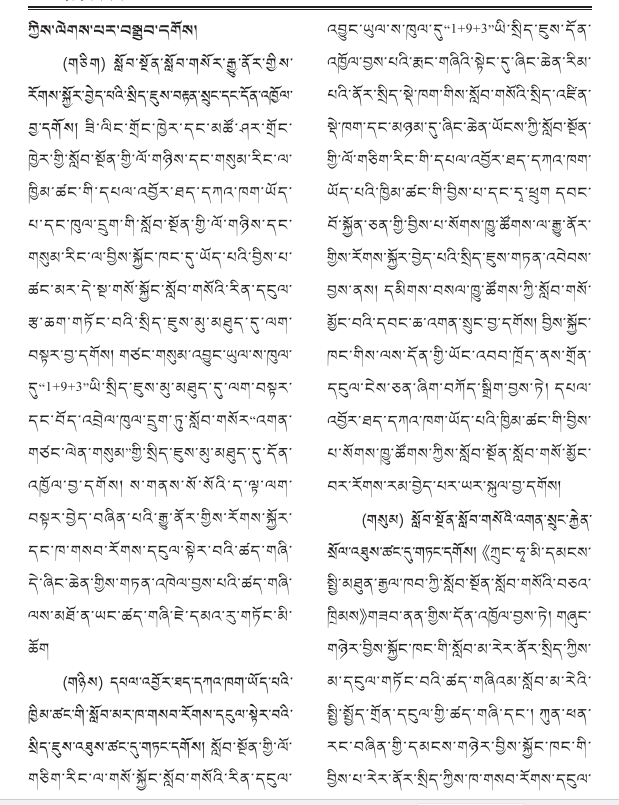 ཀྱིས་ལེགས་པར་བསྒྲུབ་དགོས།
(གཅིག) སློབ་སྔོན་སློབ་གསོར་རྒྱུ་ནོར་གྱིས་
རོགས་སྐྱོར་བྱེད་པའི་སྲིད་ཇུས་བརྟན་སྲུང་དང་དོན་འཁྱོལ་
བྱ་དགོས། ཟི་ལིང་གྲོང་ཁྱེར་དང་མཚོ་ཤར་གྲོང་
ཁྱེར་གྱི་སློབ་སྔོན་གྱི་ལོ་གཉིས་དང་གསུམ་རིང་ལ་
ཁྱིམ་ཚང་གི་དཔལ་འབྱོར་ཐད་དཀའ་ཁག་ཡོད་
པ་དང་ཁུལ་དྲུག་གི་སློབ་སྔོན་གྱི་ལོ་གཉིས་དང་
གསུམ་རིང་ལ་བྱིས་སྐྱོང་ཁང་དུ་ཡོད་པའི་བྱིས་པ་
ཚང་མར་དེ་སྔ་གསོ་སྐྱོང་སློབ་གསོའི་རིན་དངུལ་
རྩ་ཆག་གཏོང་བའི་སྲིད་ཇུས་མུ་མཐུད་དུ་ལག་
བསྟར་བྱ་དགོས། གཙང་གསུམ་འབྱུང་ཡུལ་ས་ཁུལ་
དུ“1+9+3”ཡི་སྲིད་ཇུས་མུ་མཐུད་དུ་ལག་བསྟར་
དང་བོད་འབྲེལ་ཁུལ་དྲུག་ཏུ་སློབ་གསོར“འགན་
གཙང་ལེན་གསུམ”གྱི་སྲིད་ཇུས་མུ་མཐུད་དུ་དོན་
འཁྱོལ་བྱ་དགོས། ས་གནས་སོ་སོའི་ད་ལྟ་ལག་
བསྟར་བྱེད་བཞིན་པའི་རྒྱུ་ནོར་གྱིས་རོགས་སྐྱོར་
དང་ཁ་གསབ་རོགས་དངུལ་སྟེར་བའི་ཚད་གཞི་
དེ་ཞིང་ཆེན་གྱིས་གཏན་འཁེལ་བྱས་པའི་ཚད་གཞི་
ལས་མཐོ་ན་ཡང་ཚད་གཞི་ཇེ་དམའ་རུ་གཏོང་མི་
ཆོག
(གཉིས) དཔལ་འབྱོར་ཐད་དཀའ་ཁག་ཡོད་པའི་
ཁྱིམ་ཚང་གི་སློབ་མར་ཁ་གསབ་རོགས་དངུལ་སྟེར་བའི་
སྲིད་ཇུས་འཐུས་ཚང་དུ་གཏང་དགོས། སློབ་སྔོན་གྱི་ལོ་
གཅིག་རིང་ལ་གསོ་སྐྱོང་སློབ་གསོའི་རིན་དངུལ་
འབྱུང་ཡུལ་ས་ཁུལ་དུ“1+9+3”ཡི་སྲིད་ཇུས་དོན་
འཁྱོལ་བྱས་པའི་རྨང་གཞིའི་སྟེང་དུ་ཞིང་ཆེན་རིམ་
པའི་ནོར་སྲིད་སྡེ་ཁག་གིས་སློབ་གསོའི་སྲིད་འཛིན་
སྡེ་ཁག་དང་མཉམ་དུ་ཞིང་ཆེན་ཡོངས་ཀྱི་སློབ་སྔོན་
གྱི་ལོ་གཅིག་རིང་གི་དཔལ་འབྱོར་ཐད་དཀའ་ཁག་
ཡོད་པའི་ཁྱིམ་ཚང་གི་བྱིས་པ་དང་དྭ་ཕྲུག དབང་
པོ་སྐྱོན་ཅན་གྱི་བྱིས་པ་སོགས་ཁྱུ་ཚོགས་ལ་རྒྱུ་ནོར་
གྱིས་རོགས་སྐྱོར་བྱེད་པའི་སྲིད་ཇུས་གཏན་འབེབས་
བྱས་ནས། དམིགས་བསལ་ཁྱུ་ཚོགས་ཀྱི་སློབ་གསོ་
མྱོང་བའི་དབང་ཆ་འགན་སྲུང་བྱ་དགོས། བྱིས་སྐྱོང་
ཁང་གིས་ལས་དོན་གྱི་ཡོང་འབབ་ཁྲོད་ནས་གྲོན་
དངུལ་ངེས་ཅན་ཞིག་བཀོད་སྒྲིག་བྱས་ཏེ། དཔལ་
འབྱོར་ཐད་དཀའ་ཁག་ཡོད་པའི་ཁྱིམ་ཚང་གི་བྱིས་
པ་སོགས་ཁྱུ་ཚོགས་ཀྱིས་སློབ་སྔོན་སློབ་གསོ་མྱོང་
བར་རོགས་རམ་བྱེད་པར་ཡར་སྐུལ་བྱ་དགོས།
(གསུམ) སློབ་སྔོན་སློབ་གསོའི་འགན་སྲུང་རྐྱེན་
སྲོལ་འཐུས་ཚང་དུ་གཏང་དགོས། 《ཀྲུང་ཧྭ་མི་དམངས་
སྤྱི་མཐུན་རྒྱལ་ཁབ་ཀྱི་སློབ་སྔོན་སློབ་གསོའི་བཅའ་
ཁྲིམས》གཟབ་ནན་གྱིས་དོན་འཁྱོལ་བྱས་ཏེ། གཞུང་
གཉེར་བྱིས་སྐྱོང་ཁང་གི་སློབ་མ་རེར་ནོར་སྲིད་ཀྱིས་
མ་དངུལ་གཏོང་བའི་ཚད་གཞིའམ་སློབ་མ་རེའི་
སྤྱི་སྤྱོད་གྲོན་དངུལ་གྱི་ཚད་གཞི་དང་། ཀུན་ཕན་
རང་བཞིན་གྱི་དམངས་གཉེར་བྱིས་སྐྱོང་ཁང་གི་
བྱིས་པ་རེར་ནོར་སྲིད་ཀྱིས་ཁ་གསབ་རོགས་དངུལ་